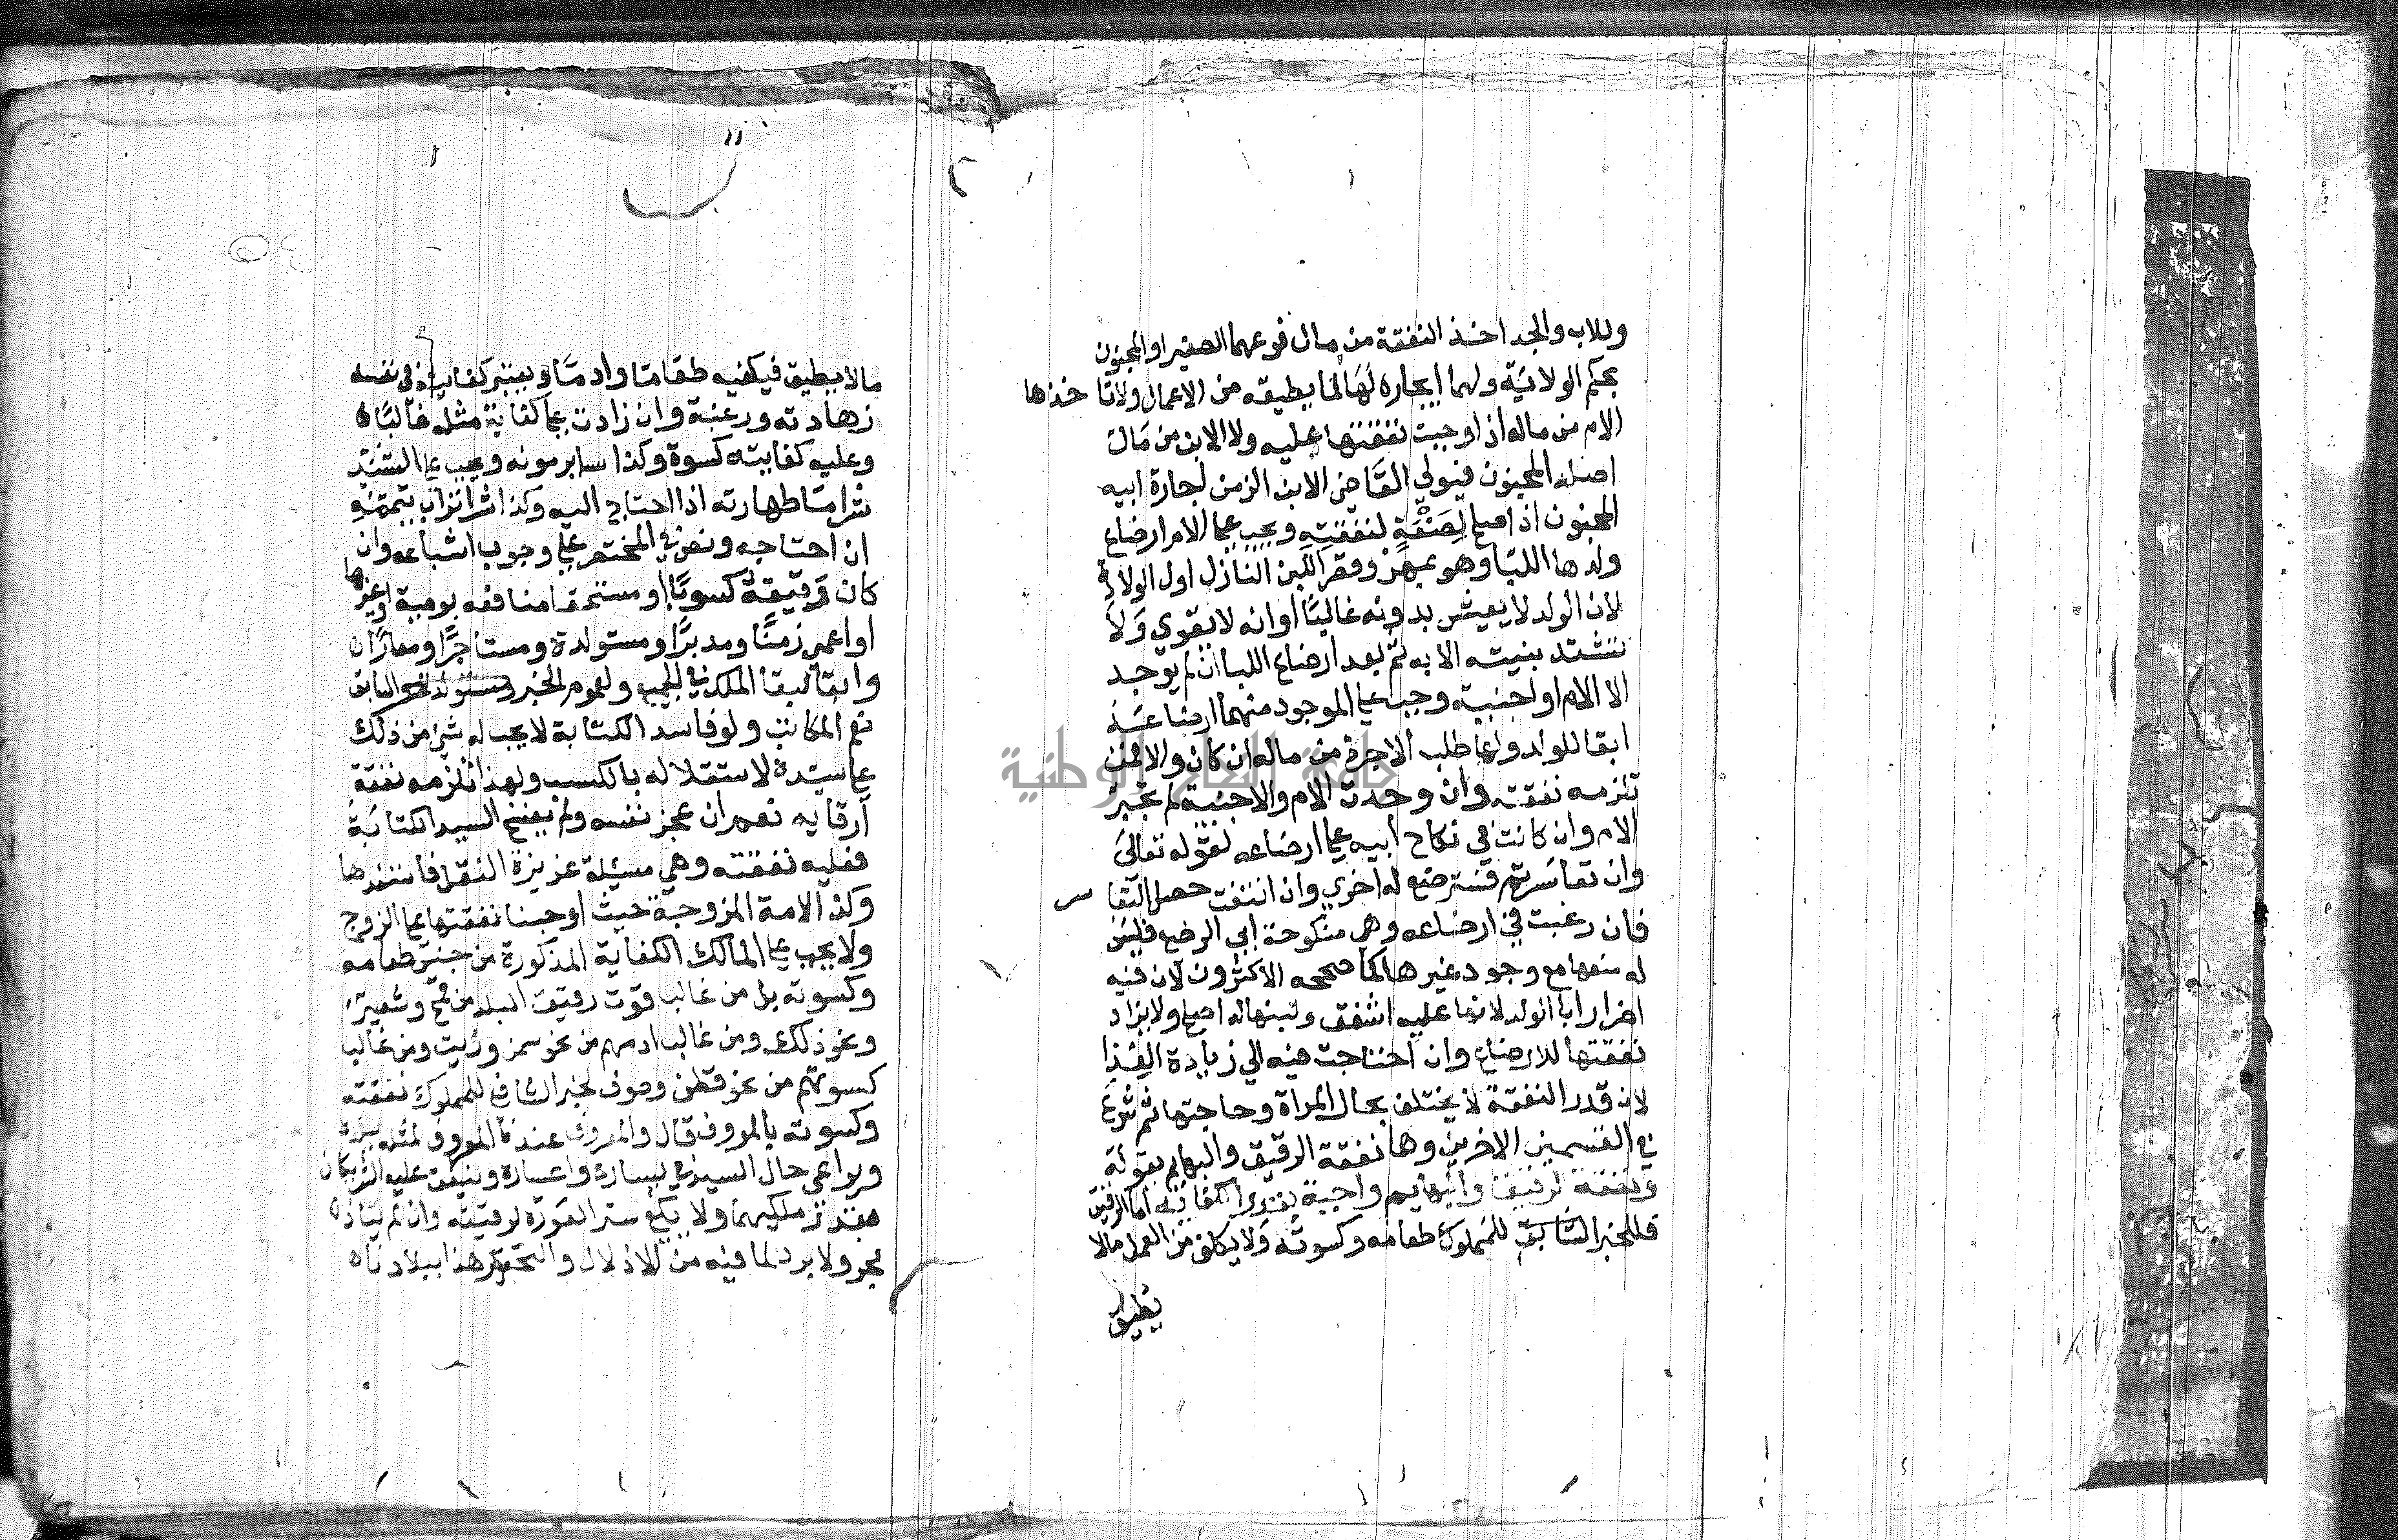 وللاب والجد اخذ النفقة من مال فرعهما الصغير او المجنون
بحكم الولاية ولهما ايجاره لها لما يطيقه من الاعمال ولا تاخذها
الام من ماله اذا وجبت نفقتها عليه ولا الابن من مال
اصله المجنون فيولي القاضي الابن الزمن اجارة ابيه
المجنون اذا صلح لصنعة لنفقته ويجب على الام ارضاع
ولدها اللبا وهو بهمز وقصر اللبن النازل اول الولادة
لان الولد لا يعيش بدونه غالبا او انه لا يقوي ولا
تشتد بنيته الا به ثم بعد ارضاع اللبا ان لم يوجد
الا الام او اجنبية وجب على الموجود منهما ارضاعه
ابقا للولد ولها طلب الاجرة من ماله ان كان والا فمن
تلزمه نفقته وان وجدت الام والاجنبية لم تجبر
الام وان كانت في نكاح ابيه على ارضاعه لقوله تعالى
وان تعاسرتم فسترضع له اخري وان امتنعت حصل التعاسر
فان رغبت في ارضاعه وهي منكوحة ابي الرضيع فليس
له منعها مع وجود غيرها كما صححه الاكثرون لان فيه
اضرارا بالولد لانها عليه اشفق ولبنها له اصلح ولا يزاد
نفقتها للارضاع وان احتاجت فيه الي زيادة الغذا
لان قدر النفقة لا يختلف بحال المراة وحاجتها ثم شرع
في القسمين الاخرين وهما نفقة الرقيق والبهايم بقوله
ونفقة الرقيق والبهايم واجبة بقدر الكفاية اما الرقيق
فللخبر السابق للمملوك طعامه وكسوته ولا يكلف من العمل مالا
يطيق
مالا يطيق فيكفيه طعاما وادما ويعتبر كفايته في نفسه
زهادته ورغبة وان زادت على كفاية مثله غالبا
وعليه كفايته كسوة وكذا ساير مونه ويجب على السيد
شرا ما طهارته اذا احتاج اليه وكذا شرا تراب تيممه
ان احتاجه ونص في المختصر على وجوب اشباعه وان
كان رقيقه كسوبا او مستحقا منافعه بوصية او غيرها
او اعمى زمنا ومدبرا ومستولدة ومستاجرا ومعارا
وابقا لبقا الملك في الجميع ولعموم الخبر السابق
نعم المكاتب ولو فاسد الكتابة لا يجب له شي من ذلك
على سيده لاستقلاله بالكسب ولهذا تلزمه نفقة
ارقايه نعم ان عجز نفسه ولم يفسخ السيد الكتابة
فعليه نفقته وهي مسئلة عزيزة النقل فاستفدها
وكذا الامة المزوجة حيث اوجبنا نفقتها على الزوج
ولا يجب على المالك الكفاية المذكورة من جنس طعامه
وكسوته بل من غالب قوت رقيق البلد من قمح وشعير
ونحو ذلك ومن غالب ادمهم من نحو سمن وزيت ومن غالب
كسوتهم من نحو قطن وصوف لخبر الشافعي للمملوك نفقته
وكسوته بالمعروف قال والمعروف عندنا المعروف لمثله ببلده
ويراعي حال السيد في يساره واعساره وينفق عليه الشريكان
بقدر ملكيهما ولا يكفي ستر العورة لرقيقه وان لم يتاذ
بحر ولا برد لما فيه من الاذلال والتحقير هذا ببلادنا